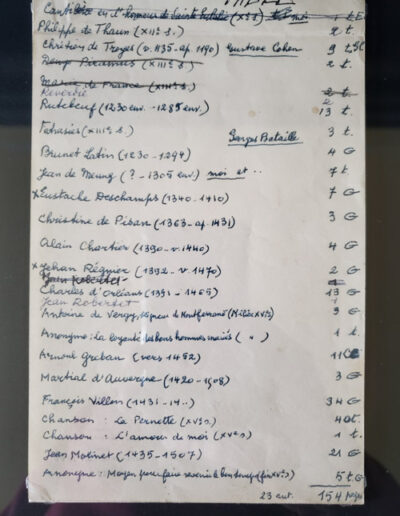 Cantilène en l'honneur de Sainte Eulalie (Xe s) et moi 1 t G
Philippe de Thaun (XIIe s.) 2 t.
Chrétien de Troyes (v. 1135-ap. 1190) Gustave Cohen 9 t
Deux Piramus (XIIe s) 2 t
Marie de France (XIIIe s) 2 t
Reverdie 2
Rutebeuf (1230 env. - 1285 env.) 13 t.
Fatrasies (XIIIe s.) Georges Bataille 3 t.
Brunet Latin (1230-1294) 4 G
Jean de Meung (? - 1305 env.) moi et .. 7 t.
x Eustache Deschamps (1340-1410) 7 G
Christine de Pisan (1363-ap. 1431) 3 G
Alain Chartier (1390-v. 1440) 4 G
x Jehan Régnier (1392 - v. 1470) 2 G
Jean Robertet
Charles d'Orléans (1391-1465) 13 G
Jean Robertet 1
Antoine de Vergy, 3 G
Anonyme : la loyauté des bons hommes mariés ( " ) 1 t.
Arnoul Greban (vers 1452) 11 G
Martial d'Auvergne (1420-1508) 3 G
François Villon (1431-14..) 34 G
Chanson : La Pernette (XVe s.) 4 t.
Chanson : L'amour de moi (XVe s) 1 t.
Jean Molinet (1435-1507) 21 G
Anonyme : Moyen pour faire revenir le bon temps (fin XVe s) 5 t. G
23 aut. 154 pages